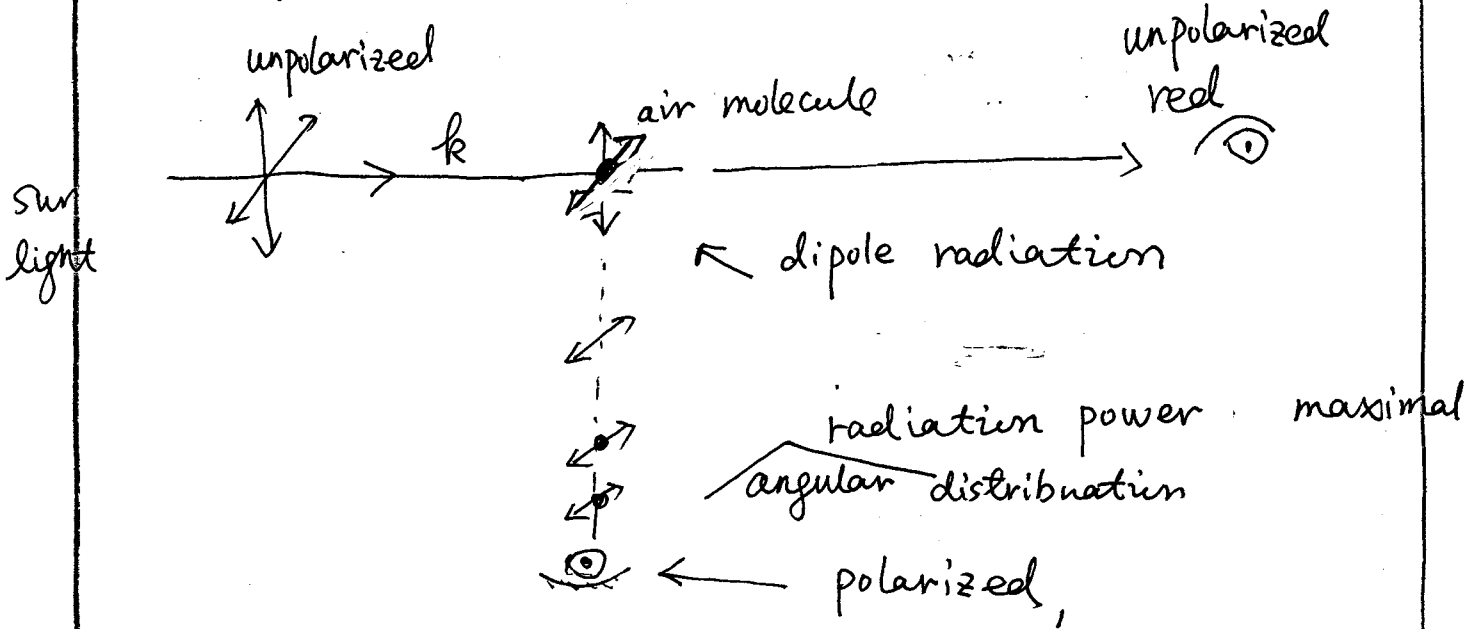 unpolarized
unpolarized
red
air molecule
k
sun
light
dipole radiation
radiation power maximal
angular distribuation
polarized,